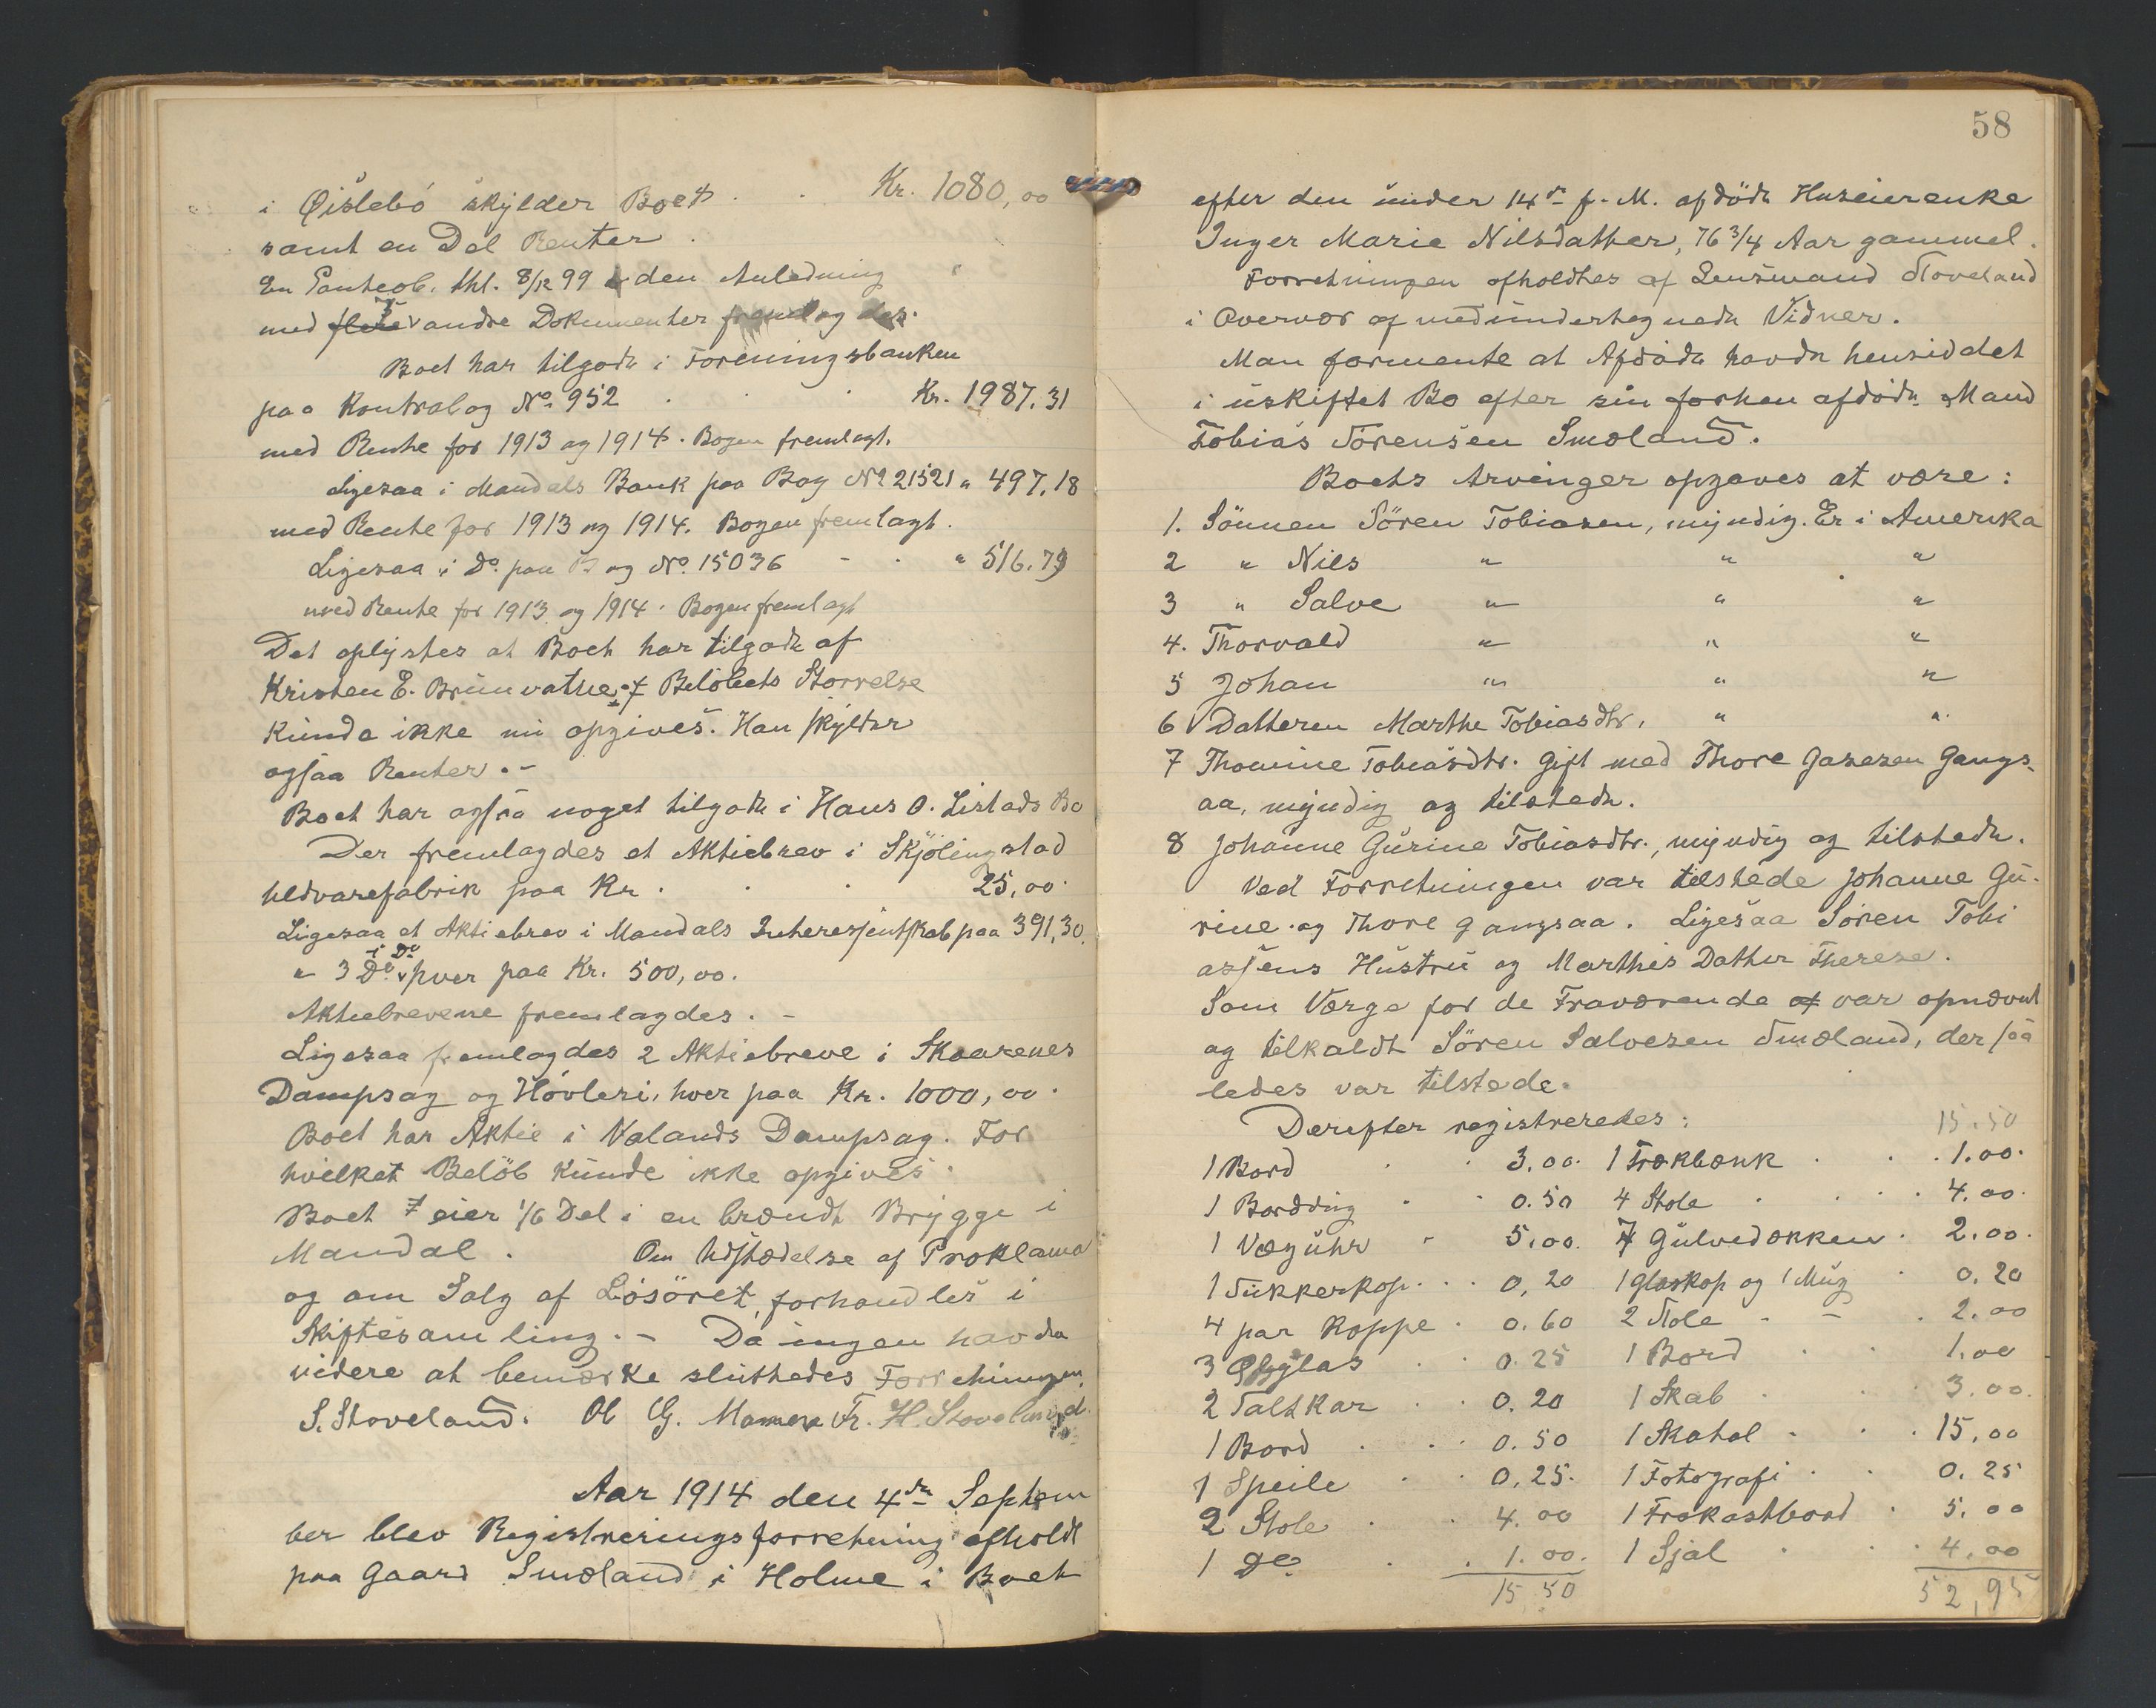 i Øislebö skylder Boet . . Kr. 1080,00
samt en Del Renter.
En Panteob. thl. 8/12 99 i den Anledning
med flere andre Dokumenter fremlagdes.
Boet har tilgode i Foreningsbanken
paa Kontrabog No. 952 . . . Kr. 1987.31
med Rente for 1913 og 1914. Bogen fremlagt.
Ligesaa i Mandals Bank paa Bog No 21521 " 497.18
med Rente for 1913 og 1914. Bogen fremlagt.
Ligesaa i Do. paa Bog No. 15036 - . " 516.79
med Rente for 1913 og 1914. Bogen fremlagt
Det oplystes at Boet har tilgode af
Kristen E. Brunvatne, Beløbets Størrelse
kunde ikke nu opgives. Han skylder
ogsaa Renter.-
Boet har ogsaa noget tilgode i Hans O. Listads Bo
Der fremlagdes et Aktiebrev i Skjölingstad
Uldvarefabrik paa Kr. . . 25,00.
Ligesaa et Aktiebrev i Mandals Interessentskab paa 391,30.
i Do
" 3 Do. hver paa Kr. 500,00.
Aktiebrevene fremlagdes. -
Ligesaa fremlagdes 2 Aktiebreve i Skaarenes
Dampsag og Hövleri, hver paa Kr. 1000,00.
Boet har Aktie i Valands Dampsag. For
hvilket Belöb kunde ikke opgives.
Boet eier 1/6 Del i en brændt Brygge i
Mandal. Om Udstædelse af Proklama
og om Salg af Lösöret forhandles i
Skiftesamling.- Da ingen havde
videre at bemærke sluttedes Forretningen.
S. Stoveland. Ol G. Fr. H. Stoveland
Aar 1914 den 4de Septem
ber blev Registreringsforretning afholdt
paa Gaard Smæland i Holme i Boet
58
efter den under 14de f. M. afdöde Huseierenke
Inger Marie Nilsdatter, 76 3/4 Aar gammel.
Forretningen afholdtes af Lensmand Stoveland
i Overvær af medundertegnede Vidner.
Man formente at Afdöde havde hensiddet
i uskiftet Bo efter sin forhen afdöde Mand
Tobias Sörensen Smæland.
Boets Arvinger opgaves at være:
1. Sönnen Sören Tobiasen, myndig. Er i Amerika
2 " Nils " " "
3 " Salve " " "
4. Thorvald " " "
5 Johan " " "
6 Datteren Marthe Tobiasdtr. " "
7 Thomine Tobiasdtr. gift med Thore Gasesen Gangs-
aa, myndig og tilstede.
8 Johanne Gurine Tobiasdtr., myndig og tilstede.
Ved Forretningen var tilstede Johanne Gu-
rine og Thore Gangsaa. Ligesaa Sören Tobi
assens Hustru og Marthes Datter Therese.
Som Værge for de Fraværende var opnævnt
og tilkaldt Sören Salvesen Smæland, der saa
ledes var tilstede.
Derefter registreredes: 15.50
1 Bord . . 3.00. 1 Trækbænk . . . 1.00.
1 Borddug . . 0.50 4 Stole . . . . 4.00.
1 Væguhr . 5.00. 7 Gulvedækken . 2.00.
1 Sukkerkop . . . 0,20 1 Glaskop og 1 Mug . 0.20
4 par Koppe . 0.60 2 Stole . - . 2.00
3 Ølglas . . 0.25 1 Bord . . 1.00
2 Saltkar . . 0.20 1 Skab . . . 3.00.
1 Bord . . . 0.50 1 Skatol . . . 15.00
1 Speile . . 0.25. 1 Fotografi . . 0.25
2 Stole . . 4.00 1 Frokostbord . 5.00
1 Do . . 1.00. 1 Sjal . . . 4.00
15.50 52,95